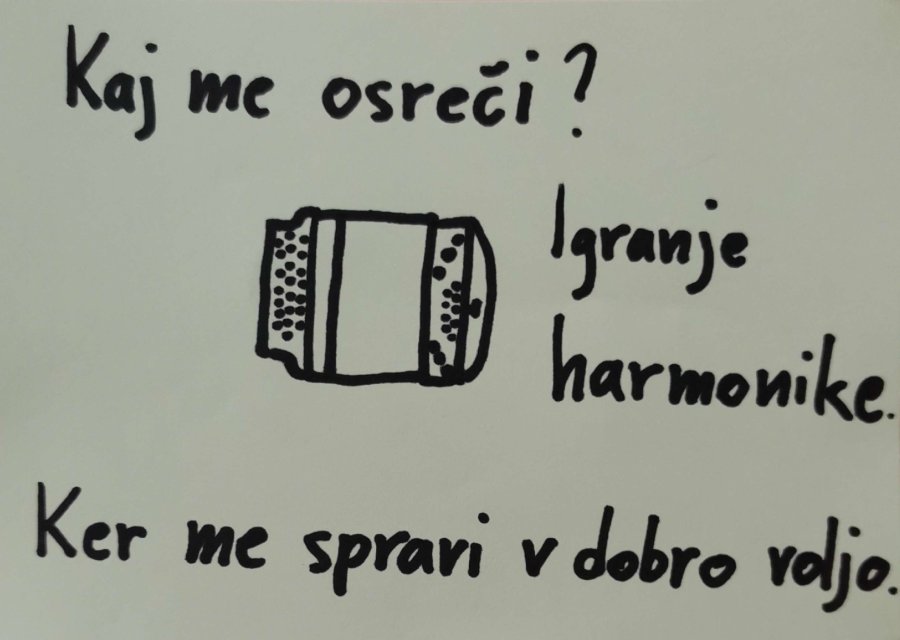 Kaj me osreči?
Igranje
harmonike.
Ker me spravi v dobro voljo.